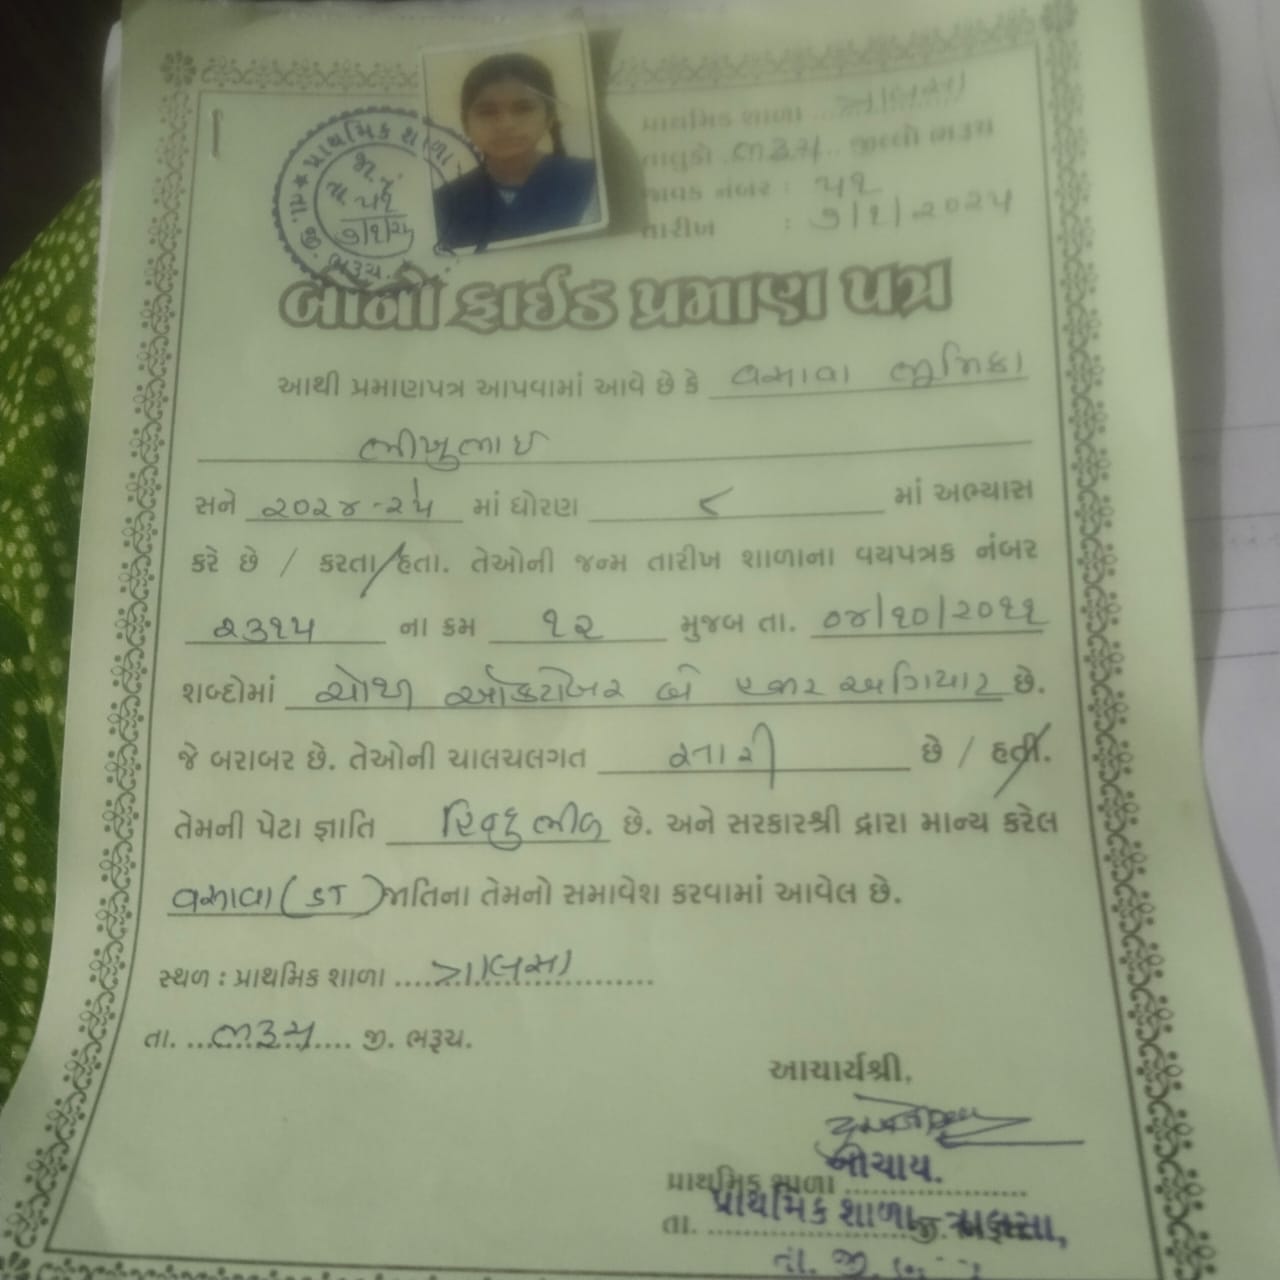 પ્રાથમિક શાળા
જા. નં
તા. ૫૧
૭/૧/૨૫
ભરૂચ.
પ્રાથમિક શાળા ત્રાલસા
તાલુકો ભરૂચ જીલ્લો ભરૂચ
જાવક નંબર : ૫૧
તારીખ : ૭/૧/૨૦૨૫
બોનો ફાઈડ પ્રમાણ પત્ર
આથી પ્રમાણપત્ર આપવામાં આવે છે કે વસાવા ભૂમિકા
ભીખુભાઇ
સને ૨૦૨૪-૨૫ માં ધોરણ ૮ માં અભ્યાસ
કરે છે / કરતા/હતા. તેઓની જન્મ તારીખ શાળાના વયપત્રક નંબર
૨૩૧૫ ના ક્રમ ૧૨ મુજબ તા. ૦૪/૧૦/૨૦૧૧
શબ્દોમાં ચોથી ઓક્ટોબર બે હજાર અગિયાર છે.
જે બરાબર છે. તેઓની ચાલચલગત સારી છે / હતી.
તેમની પેટા જ્ઞાતિ હિન્દુ ભીલ છે. અને સરકારશ્રી દ્વારા માન્ય કરેલ
વસાવા (ST) જાતિના તેમનો સમાવેશ કરવામાં આવેલ છે.
સ્થળ : પ્રાથમિક શાળા ....ત્રાલસા....
તા. ....ભરૂચ.... જી. ભરૂચ.
આચાર્યશ્રી,
પ્રાથમિક શાળા
તા. જી.
પ્રાથમિક શાળા ત્રાલસા,
તા. જી.